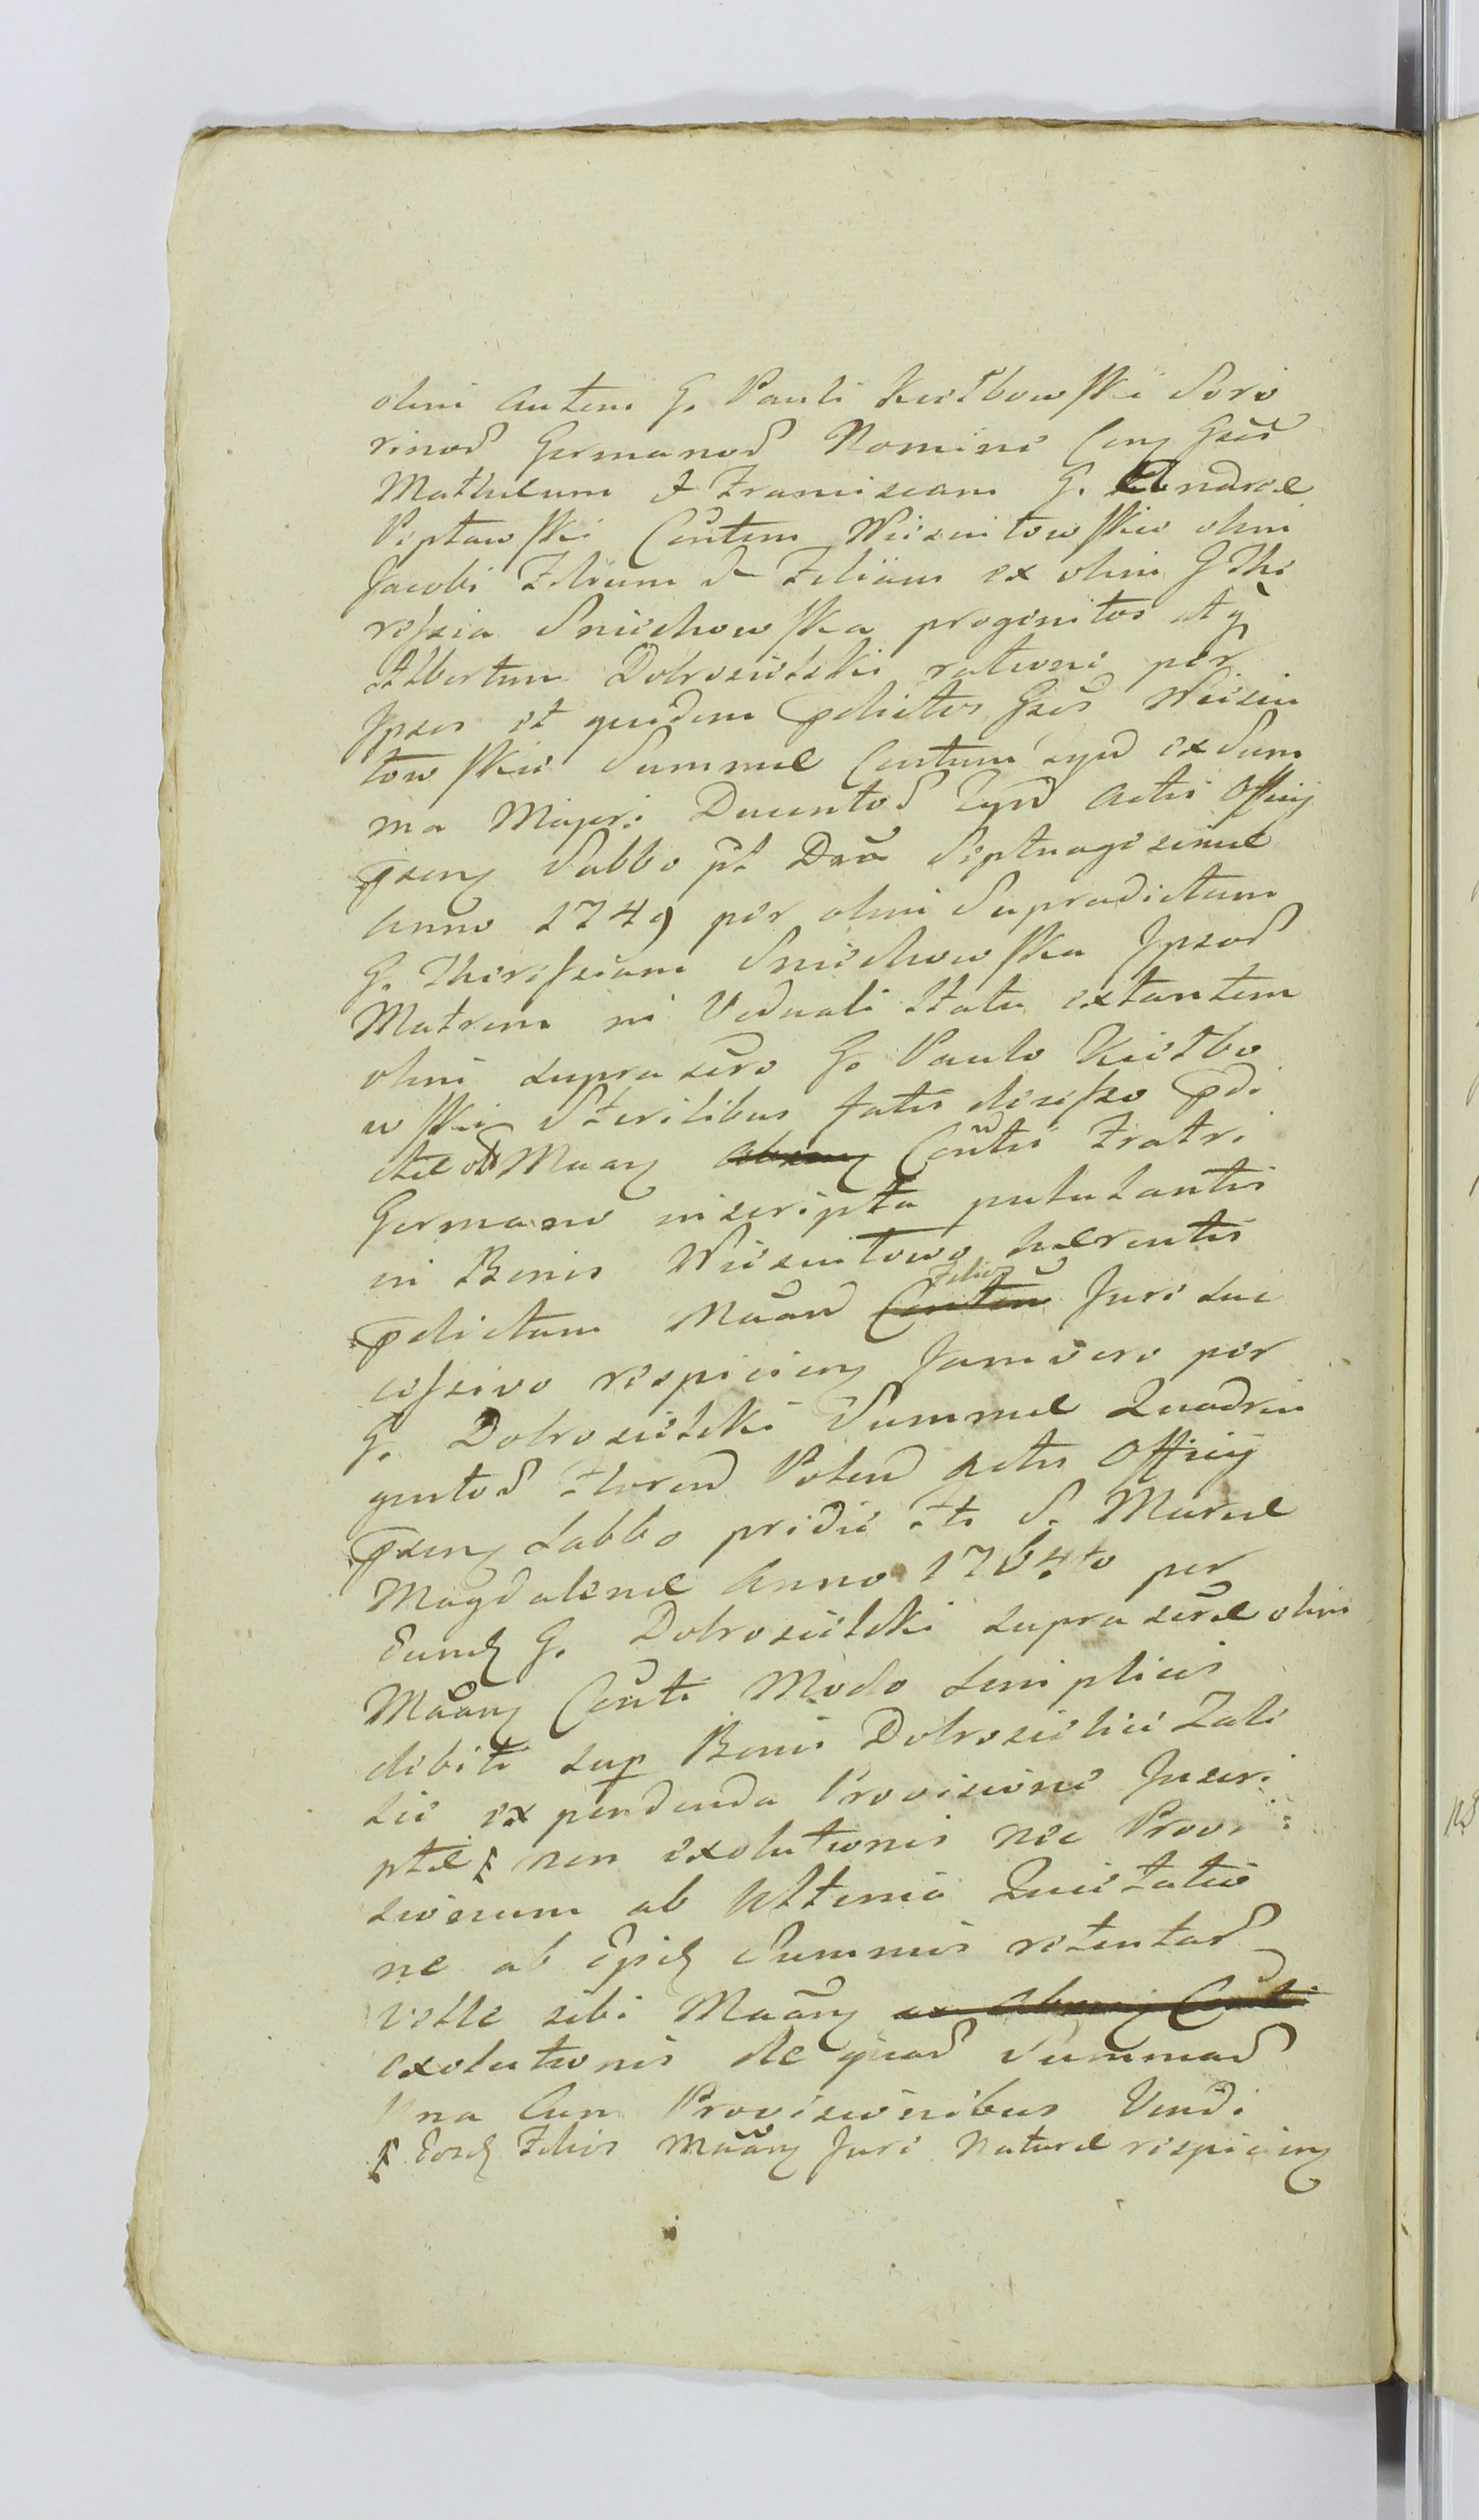 olim autem G. Pauli Kiełbowski Soro
rinos Germanos Nomine Conz Gsos
Mathaeum & Franciscam G. Andreae
Peptowski Contem Wiszniowskie olim
Jacobi Filium & Filiam ex olim G The
ressia Sniechowska progenitos atq
Albertum Dobrosielski ratione per
Ipsos et quidem pdictos Gsos Wiszin
towskie Summae Centum Tynf ex Sum
ma Majori Ducentos Tynf Actis Officij
psenz Sabbo pt Dca Septuagesimae
Anno 1749 per olim Supradictam
G. Theressiam Sniechowska Ipsos
Matrem in Viduali Statu extantem
olim suprascro G. Paulo Kiełbo
wski Sterilibus fatis discesso pdi
ctae Maanz Contis Fratri
Germano inscripta pululantis
in Bonis Wiszintowo haerentis
pdictam Maan Filios Juri suc
cessivo respicienz Jam vero per
G. Dobrosielski Summae Quadrin
gentos Floren Polon Actis Officij
psenz Sabbo pridie Fti S. Mariae
Magdalenae Anno 1764to per
Eundz G. Dobrosielski suprascrae olim
Maanz Conti Modo simplicis
debiti sup Bonis Dobrosielice Zale
sie expendenda Provisione Inscri
ptae non exolutionis nec Provi
sionum ab Ultima Quietatio
ne ab Epidz Summis retentas
velle sibi Maanz
exolutionis de quas Summas
Una Cum Provisionibus Vendi
Eosdz Filios Maanz Juri Naturae respicienz